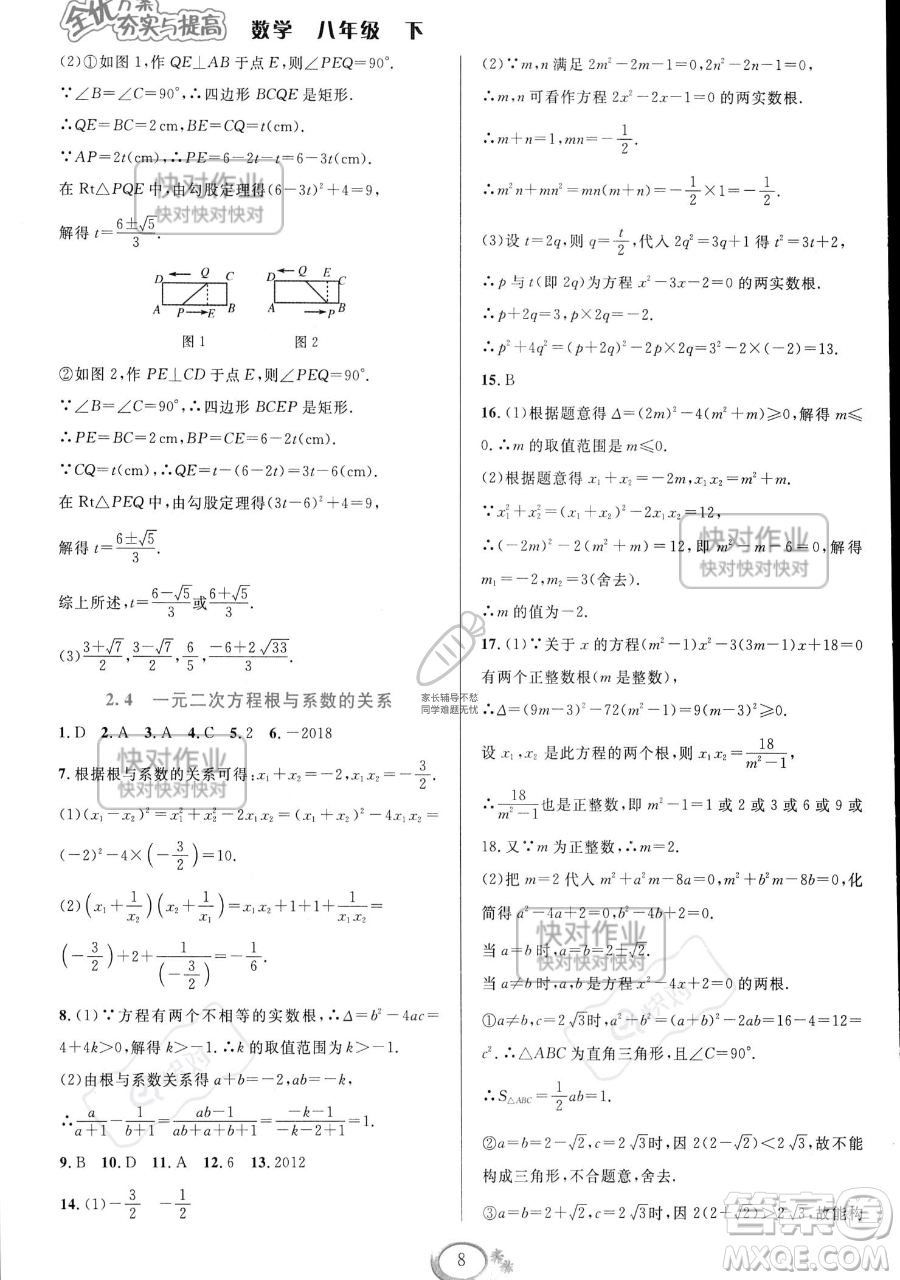 全优方案
夯实与提高 数学 八年级 下
(2)①如图 1,作 QE⊥AB 于点 E,则∠PEQ=90°.
∵∠B=∠C=90°,∴四边形 BCQE 是矩形.
∴QE=BC=2 cm,BE=CQ=t(cm).
∵AP=2t(cm),∴PE=6-2t-t=6-3t(cm).
在 Rt△PQE 中,由勾股定理得(6-3t)²+4=9,
解得 t=(6±√5)/3.
D Q C
A P E B
图 1
D Q E C
A P B
图 2
②如图 2,作 PE⊥CD 于点 E,则∠PEQ=90°.
∵∠B=∠C=90°,∴四边形 BCEP 是矩形.
∴PE=BC=2 cm,BP=CE=6-2t(cm).
∵CQ=t(cm),∴QE=t-(6-2t)=3t-6(cm).
在 Rt△PEQ 中,由勾股定理得(3t-6)²+4=9,
解得 t=(6±√5)/3.
综上所述,t=(6-√5)/3或(6+√5)/3.
(3)(3+√7)/2,(3-√7)/2,6/5,(-6+2√33)/3.
2.4 一元二次方程根与系数的关系
1.D 2.A 3.A 4.C 5.2 6.-2018
7.根据根与系数的关系可得:x₁+x₂=-2,x₁x₂=-3/2.
(1)(x₁-x₂)²=x₁²+x₂²-2x₁x₂=(x₁+x₂)²-4x₁x₂=
(-2)²-4×(-3/2)=10.
(2)(x₁+1/x₂)(x₂+1/x₁)=x₁x₂+1+1+1/(x₁x₂)=
(-3/2)+2+1/(-3/2)=-1/6.
8.(1)∵方程有两个不相等的实数根,∴Δ=b²-4ac=
4+4k>0,解得 k>-1.∴k 的取值范围为 k>-1.
(2)由根与系数关系得 a+b=-2,ab=-k,
∴a/(a+1)-1/(b+1)=(ab-1)/(ab+a+b+1)=(-k-1)/(-k-2+1)=1.
9.B 10.D 11.A 12.6 13.2012
14.(1)-3/2 -1/2
(2)∵m,n 满足 2m²-2m-1=0,2n²-2n-1=0,
∴m,n 可看作方程 2x²-2x-1=0 的两实数根.
∴m+n=1,mn=-1/2.
∴m²n+mn²=mn(m+n)=-1/2×1=-1/2.
(3)设 t=2q,则 q=t/2,代入 2q²=3q+1 得 t²=3t+2,
∴p 与 t(即 2q)为方程 x²-3x-2=0 的两实数根.
∴p+2q=3,p×2q=-2.
∴p²+4q²=(p+2q)²-2p×2q=3²-2×(-2)=13.
15.B
16.(1)根据题意得 Δ=(2m)²-4(m²+m)≥0,解得 m≤
0.∴m 的取值范围是 m≤0.
(2)根据题意得 x₁+x₂=-2m,x₁x₂=m²+m.
∵x₁²+x₂²=(x₁+x₂)²-2x₁x₂=12,
∴(-2m)²-2(m²+m)=12,即 m²-m-6=0,解得
m₁=-2,m₂=3(舍去).
∴m 的值为-2.
17.(1)∵关于 x 的方程(m²-1)x²-3(3m-1)x+18=0
有两个正整数根(m 是整数).
∴Δ=(9m-3)²-72(m²-1)=9(m-3)²≥0.
设 x₁,x₂ 是此方程的两个根,则 x₁x₂=18/(m²-1),
∴18/(m²-1)也是正整数,即 m²-1=1 或 2 或 3 或 6 或 9 或
18.又∵m 为正整数,∴m=2.
(2)把 m=2 代入 m²+a²m-8a=0,m²+b²m-8b=0,化
简得 a²-4a+2=0,b²-4b+2=0.
当 a=b 时,a=b=2±√2.
当 a≠b 时,a,b 是方程 x²-4x+2=0 的两根.
①a≠b,c=2√3时,由于 a²+b²=(a+b)²-2ab=16-4=12=
c².∴△ABC 为直角三角形,且∠C=90°.
∴S△ABC=1/2 ab=1.
②a=b=2-√2,c=2√3时,因 2(2-√2)<2√3,故不能
构成三角形,不合题意,舍去.
③a=b=2+√2,c=2√3时,因 2(2+√2)>2√3,故能构
8
快对作业
快对快对快对
快对作业
快对快对快对
快对作业
快对快对快对
快对作业
快对快对快对
家长辅导不愁
同学难题无忧
快对
快对
答案圈
MXQE.COM